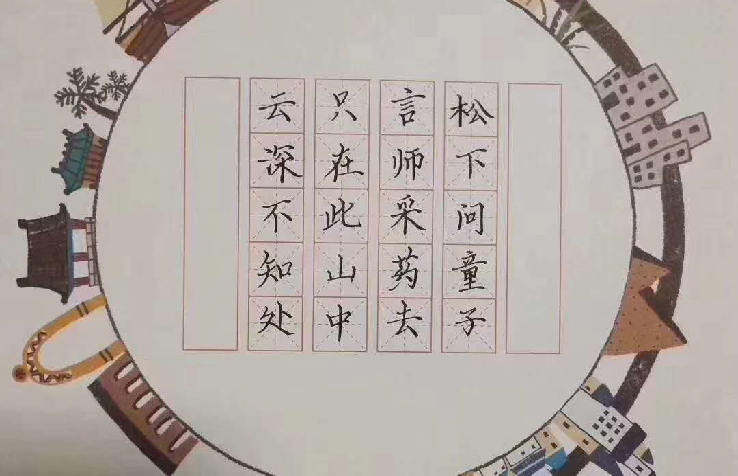 松下问童子
言师采药去
只在此山中
云深不知处